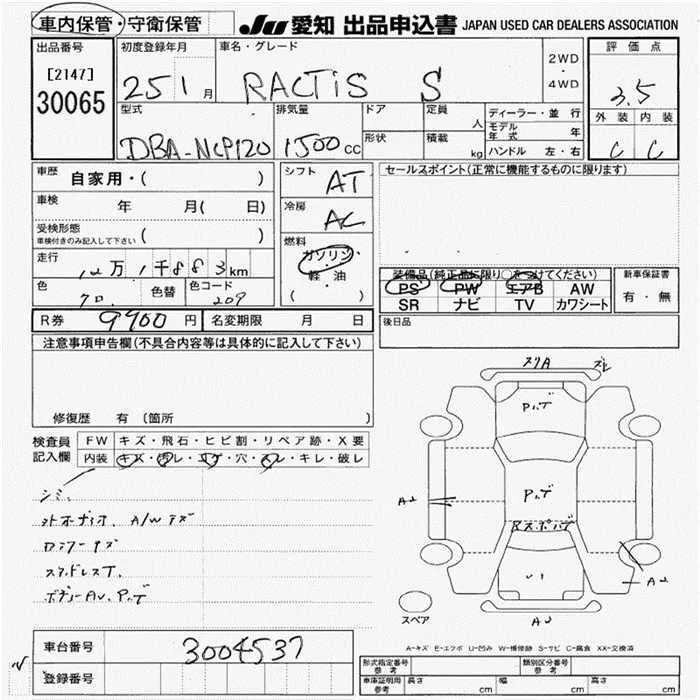 車内保管・守衛保管 JU 愛知 出品申込書 JAPAN USED CAR DEALERS ASSOCIATION
出品番号 初度登録年月 車名・グレード 2WD・4WD 評価点
[2147]
30065 25 1 月 RACTIS S 3.5
型式 排気量 ドア 定員 人 ディーラー・並行 外装 内装
DBA-NCP120 1500 CC 形状 積載 kg モデル年式 年 C C
ハンドル 左・右
車歴 自家用・( ) シフト AT セールスポイント(正常に機能するものに限ります)
車検 年 月( 日) 冷房 AC
受検形態
車検付きのみ記入して下さい ( ) 燃料 ガソリン・軽油 ( )
走行 万 1千 8 8 3 km 装備品(純正品に限り○をつけてください) 新車保証書
色 色替 色コード 209 PS PW エアB AW 有・無
SR ナビ TV カワシート
R券 9900 円 名変期限 月 日 後日品
注意事項申告欄(不具合内容等は具体的に記入して下さい)
修復歴 有 (箇所
検査員記入欄 FW キズ・飛石・ヒビ割・リペア跡・X要
内装 キズ・汚レ・コゲ・穴・スレ・キレ・破レ
シミ
A/W キズ
スタッドレスT.
A2
A2
スペア
A-キズ E-エクボ U-凹み W-補修跡 S-サビ C-腐食 XX-交換済
車台番号 3004537
登録番号
型式指定番号 参考 類別区分番号 参考
車庫証明用 参考 長さ cm 幅 cm 高さ cm